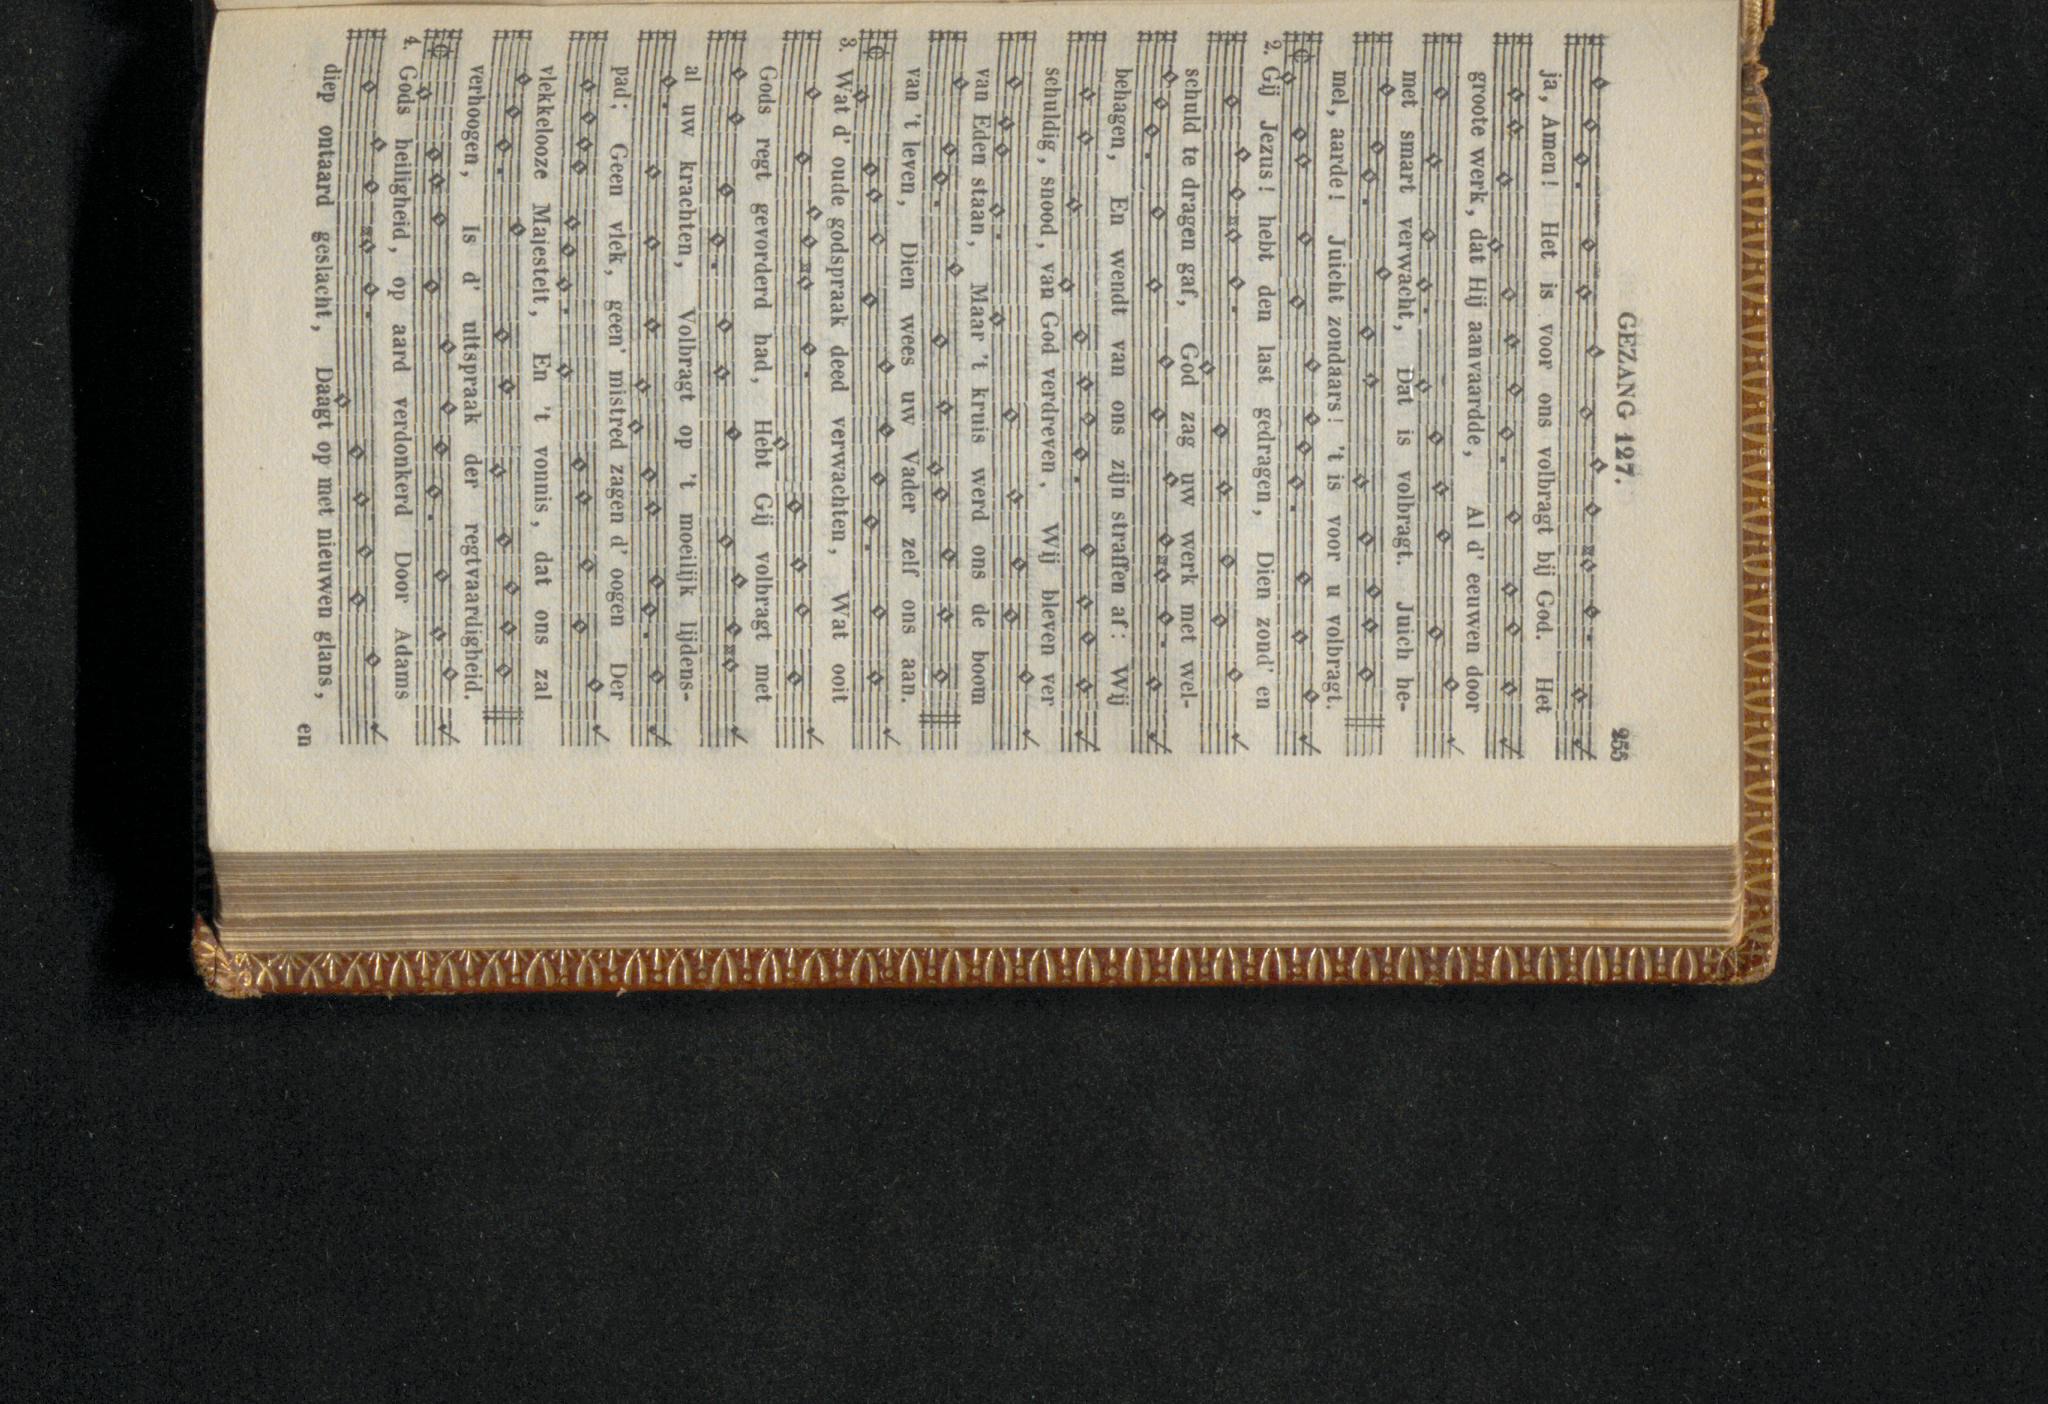 GEZANG 127. 255
ja, Amen! Het is voor ons volbragt bij God. Het
groote werk, dat Hij aanvaardde, Al d' eeuwen door
met smart verwacht, Dat is volbragt. Juich he-
mel, aarde! Juicht zondaars! 't is voor u volbragt.
2. Gij Jezus! hebt den last gedragen, Dien zond' en
schuld te dragen gaf, God zag uw werk met wel-
behagen, En wendt van ons zijn straffen af: Wij
schuldig, snood, van God verdreven, Wij bleven ver
van Eden staan, Maar 't kruis werd ons de boom
van 't leven, Dien wees uw Vader zelf ons aan.
3. Wat d' oude godspraak deed verwachten, Wat ooit
Gods regt gevorderd had, Hebt Gij volbragt met
al uw krachten, Volbragt op 't moeilijk lijdens-
pad; Geen vlek, geen' mistred zagen d' oogen Der
vlekkelooze Majesteit, En 't vonnis, dat ons zal
verhoogen, Is d' uitspraak der regtvaardigheid.
4. Gods heiligheid, op aard verdonkerd Door Adams
diep ontaard geslacht, Daagt op met nieuwen glans,
en